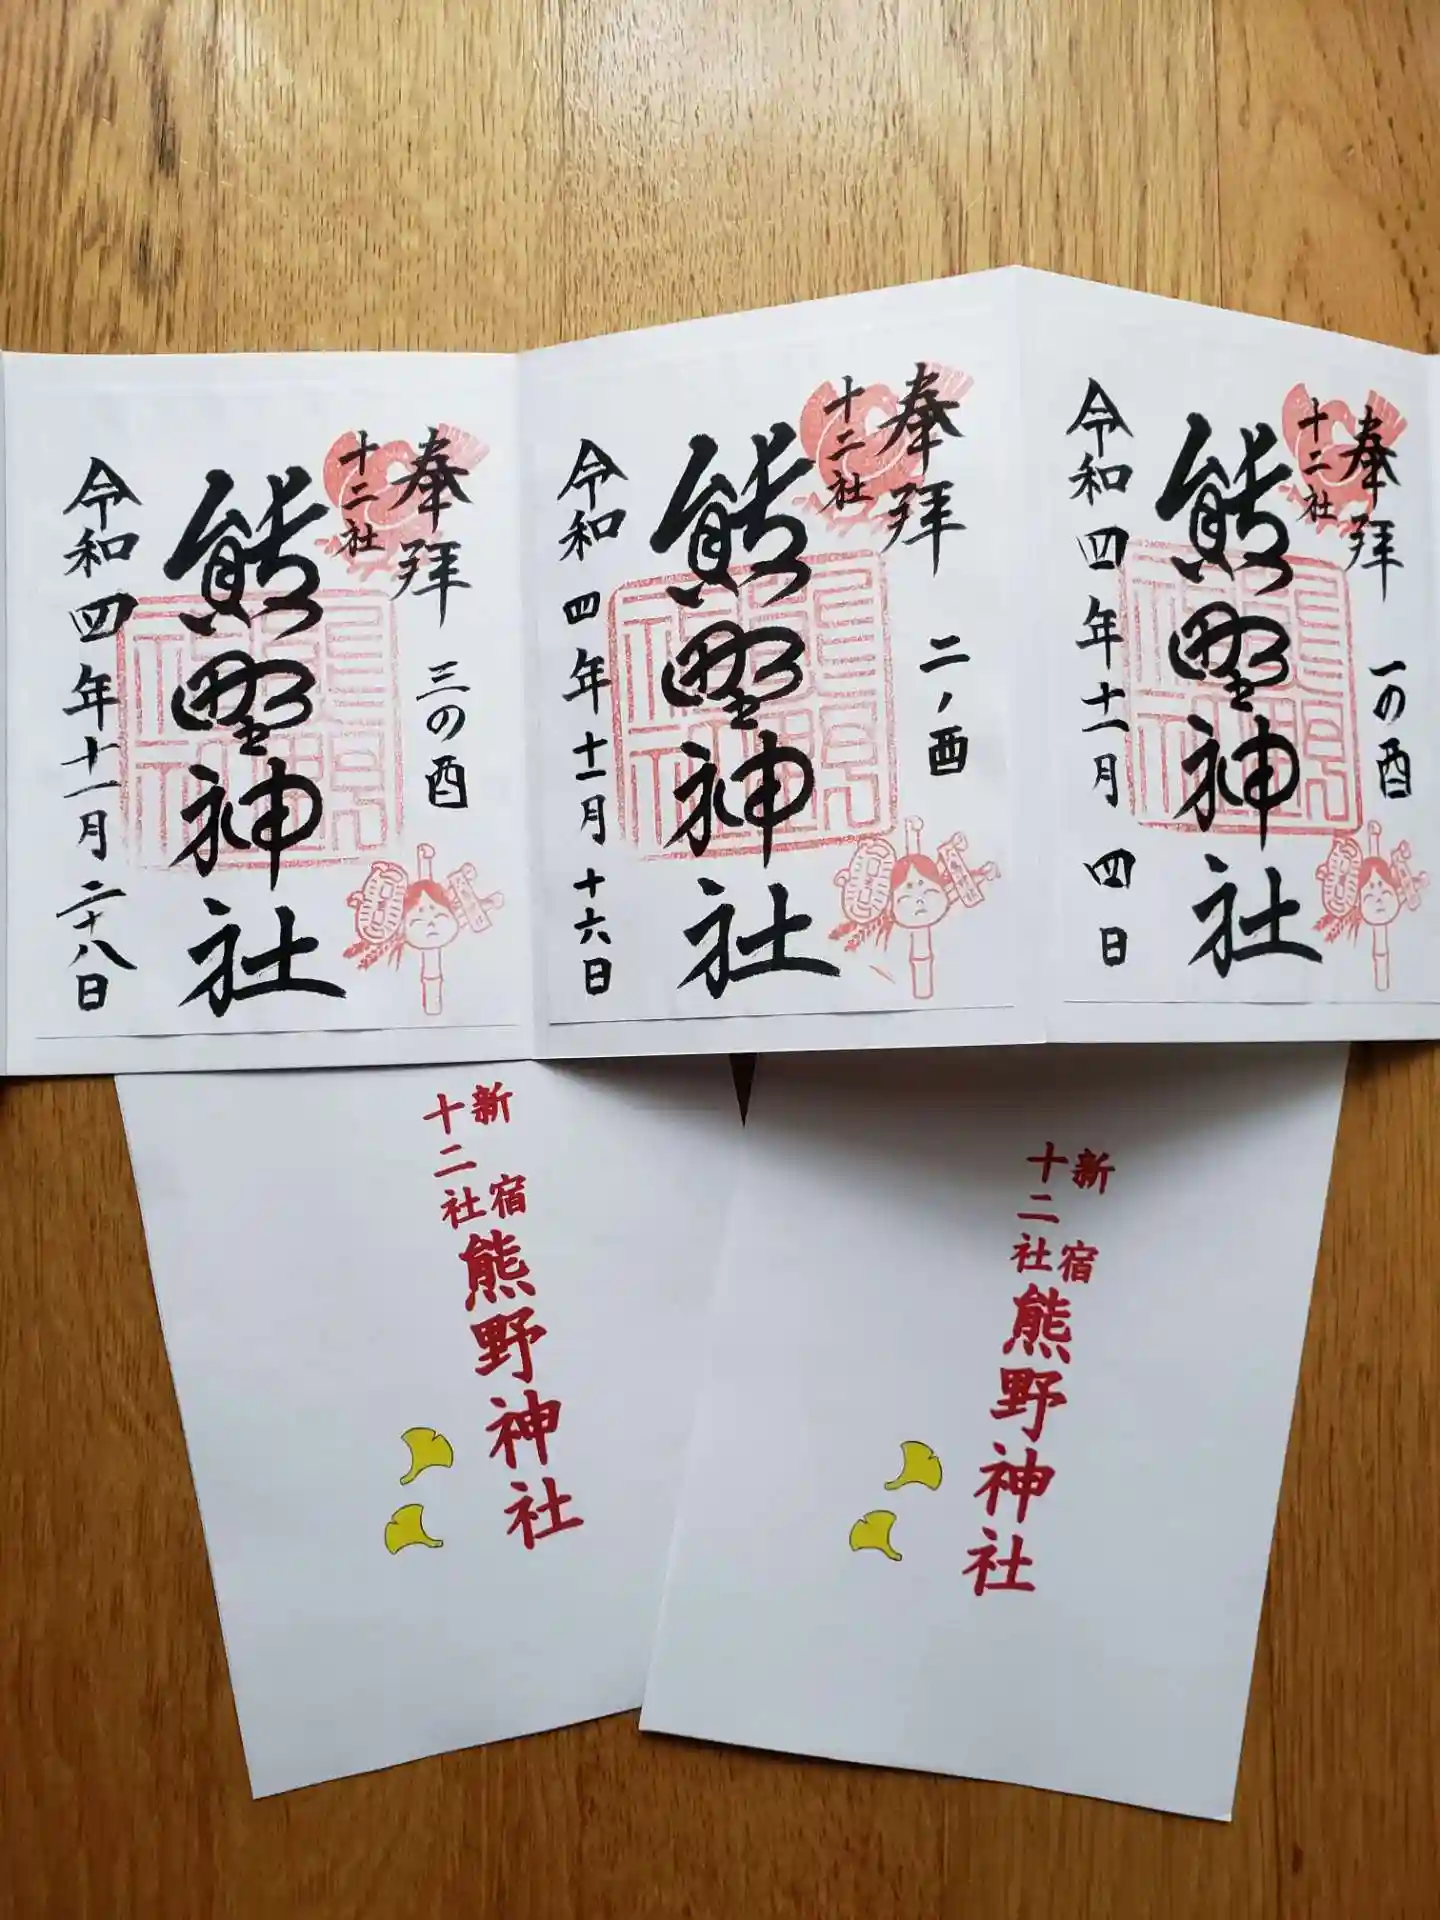 奉拝 一の酉
十二社
熊野神社
令和四年十一月四日
奉拝 二ノ酉
十二社
熊野神社
令和四年十一月十六日
奉拝 三の酉
十二社
熊野神社
令和四年十一月二十八日
新宿
十二社
熊野神社
新宿
十二社
熊野神社